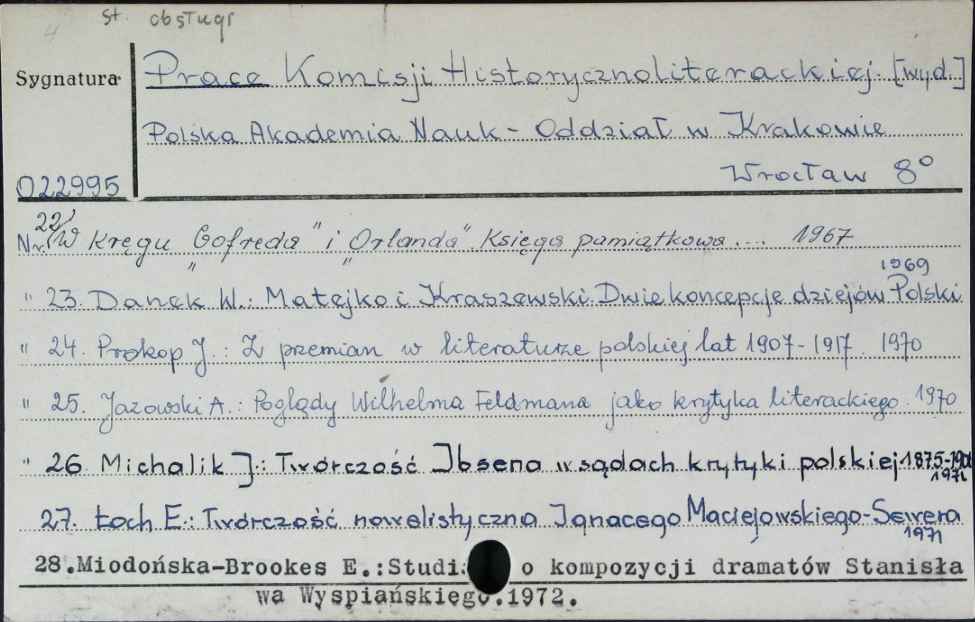 st. obsługi
Sygnatura
Prace Komisji Historycznoliterackiej. [wyd.]
Polska Akademia Nauk - Oddział w Krakowie
Wrocław 8°
022995
Nr. 22/ W kręgu "Gofreda" i "Orlanda". Księga pamiątkowa ... 1967
" 23. Danek W.: Matejko i Kraszewski. Dwie koncepcje dziejów Polski 1969
" 24. Prokop J.: Z przemian w literaturze polskiej lat 1907-1917. 1970
" 25. Jazowski A.: Poglądy Wilhelma Feldmana jako krytyka literackiego. 1970
" 26 Michalik J.: Twórczość Ibsena w sądach krytyki polskiej 1971
27. Łoch E.: Twórczość nowelistyczna Ignacego Maciejowskiego-Sewera 1971
28.Miodońska-Brookes E.:Studi o kompozycji dramatów Stanisła
wa Wyspiańskiego.1972.